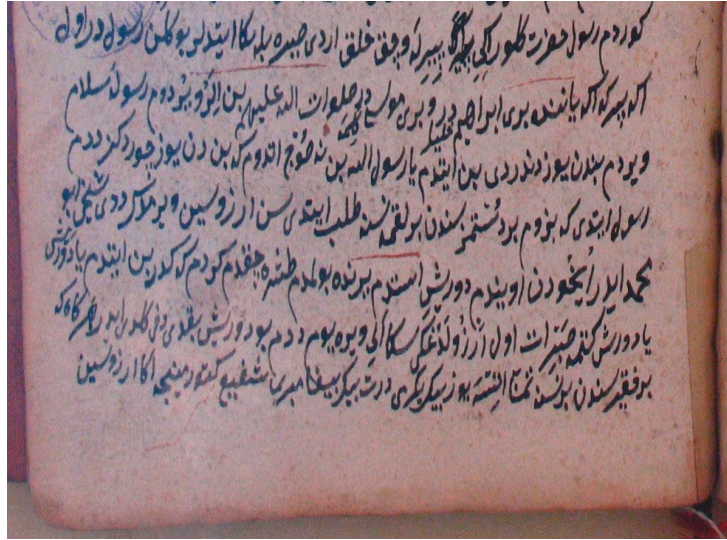 كوردم رسول حضرت كلور اكى پيرله و چوق خلق اردى صيره بله سكا ايتديلر بو كلن رسول در اول
اكى پير كه اكه ياننده برى ابراهيم در و برى موسى در صلوات الله عليهم بن ايلرو يردم رسوله سلام
ويردم بندن يوز دندردى بن ايتدم يا رسول الله بن نه صوج اتدوم كه بن دن يوز چوردكز ددم
رسول ايتدى كه بزوم بر دستمز سندن بر لقمه نسنه طلب ايتدى سن ارزوسين ويرمدك ددى شيخ ابو
محمد ايدر اويخودن اويندم دورپش استدم يرنده بولمدم طشره چقدم كردم كه كدر بن ايتدم يا دورپش
يا دورپش كتمه صبر ات اول ارزولدغكى سكا الى ويره يوم ددم بو دورپش بقدى دخى كلدى ايدر هر كاه كه
بر فقير سندن بر نسنه تمنا اتسه يوز بيكرمى درت بيك پيغامبرى شفيع كتورمينجه اكا ارزوسين